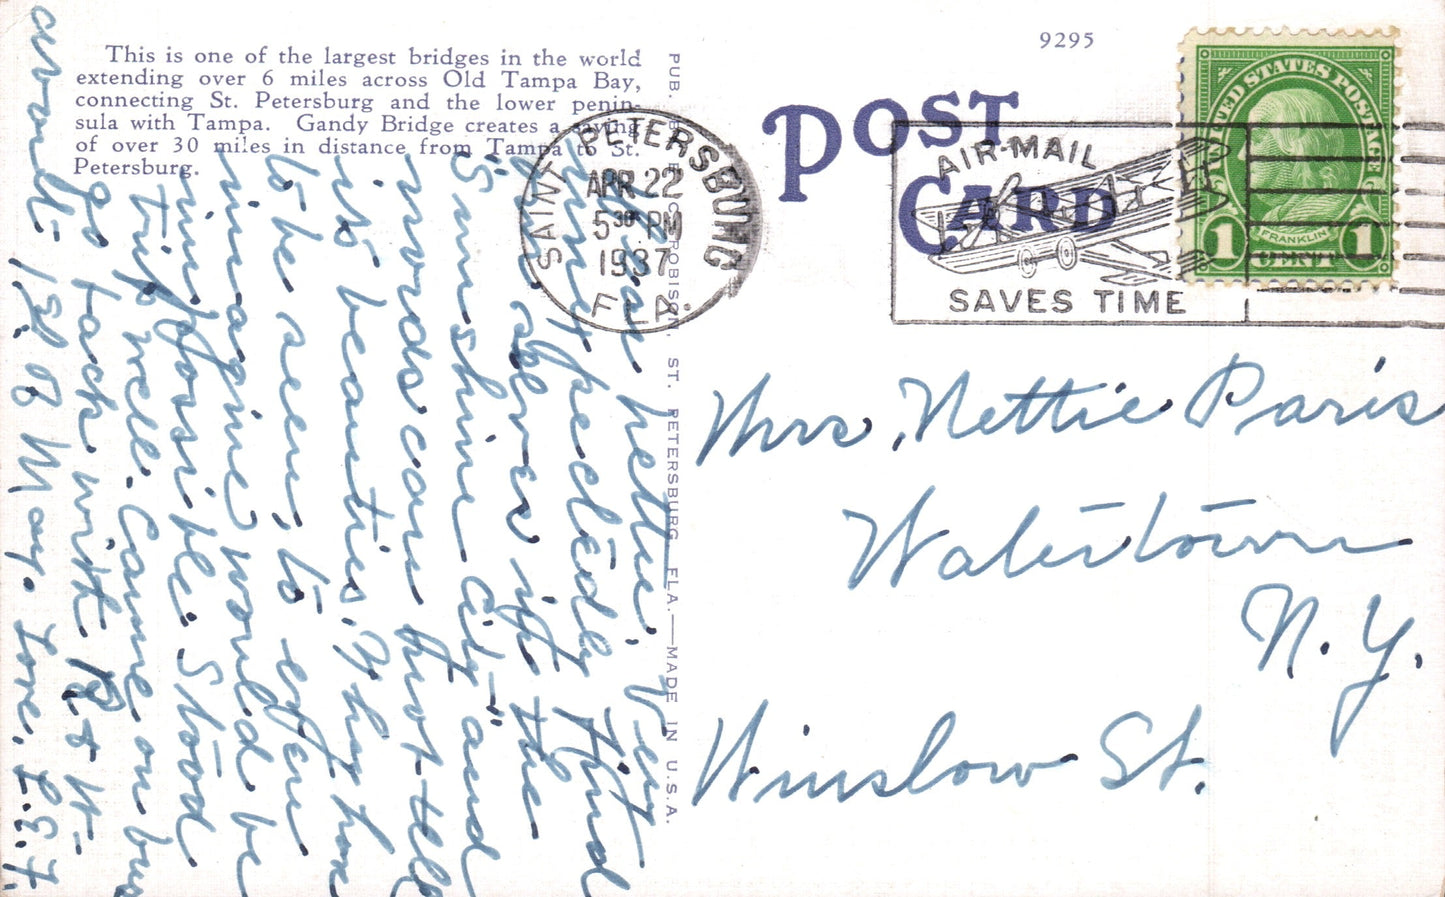 This is one of the largest bridges in the world
extending over 6 miles across Old Tampa Bay,
connecting St. Petersburg and the lower penin-
sula with Tampa. Gandy Bridge creates a saving
of over 30 miles in distance from Tampa to St.
Petersburg.
PUB. ROBISON, ST. PETERSBURG, FLA.—MADE IN U.S.A.
9295
POST
CARD
SAINT PETERSBURG
APR 22
5 30 PM
1937
FLA.
AIR-MAIL
SAVES TIME
UNITED STATES POSTAGE
FRANKLIN
1 CENT 1
Mrs. Nettie Paris
Watertown
N.Y.
Winslow St.
Dear Nettie,
find
the
"Sunshine City" and
words can not tell
its beauties. It has
to be seen, to even
imagine would be
impossible. Stood
trip well. Came on bus
go back with
around 1st of May. Love,